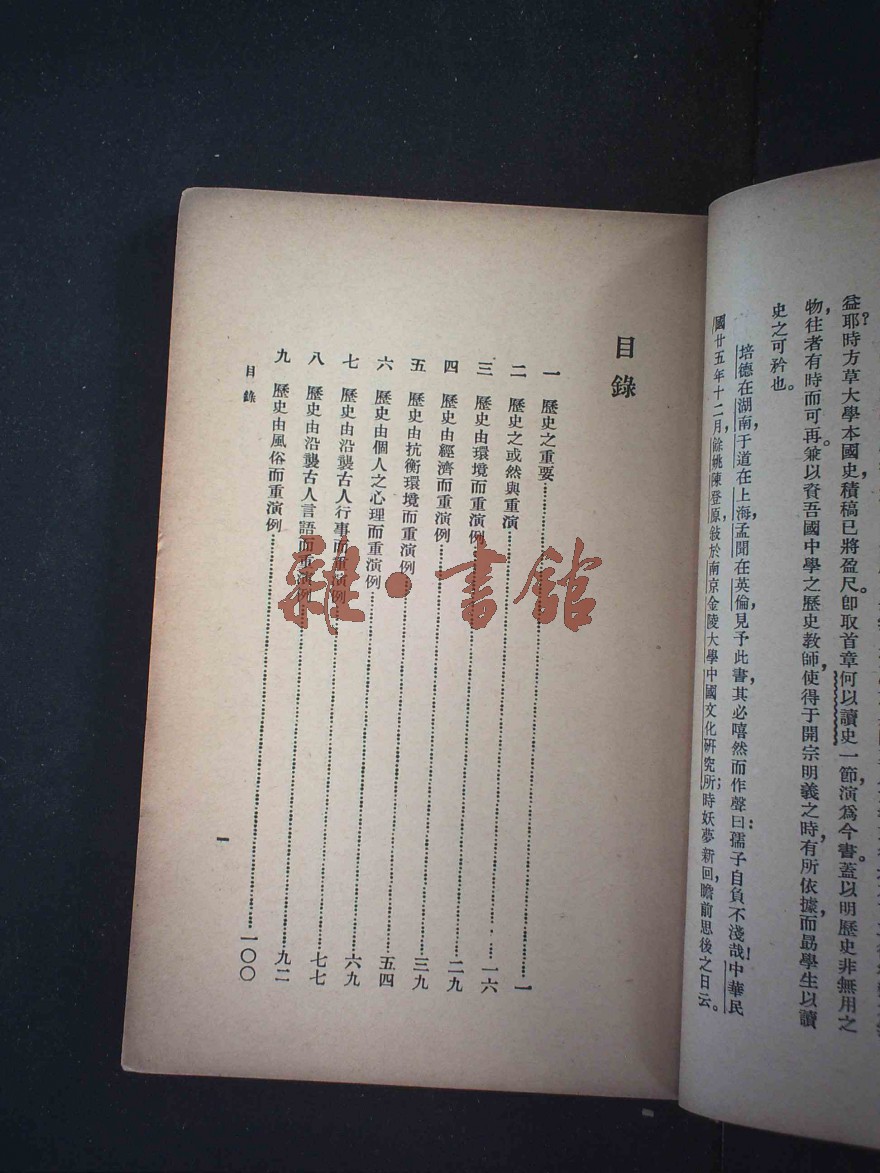 益耶？時方草大學本國史，積稿已將盈尺。卽取首章何以讀史一節，演爲今書。蓋以明歷史非無用之
物，往者有時而可再。兼以資吾國中學之歷史教師，使得于開宗明義之時，有所依據，而勗學生以讀
史之可矜也。
培德在湖南，于道在上海，孟聞在英倫，見予此書，其必嘻然而作聲曰：孺子自負不淺哉！中華民
國廿五年十二月，餘姚陳登原敍於南京金陵大學中國文化研究所；時妖夢新回，瞻前思後之日云。
目錄
一　歷史之重要……一
二　歷史之或然與重演……一六
三　歷史由環境而重演例……二九
四　歷史由經濟而重演例……三九
五　歷史由抗衡環境而重演例……五四
六　歷史由個人之心理而重演例……六九
七　歷史由沿襲古人行事而重演例……七七
八　歷史由沿襲古人言語而重演例……九二
九　歷史由風俗而重演例……一〇〇
目錄
一
雜·書館